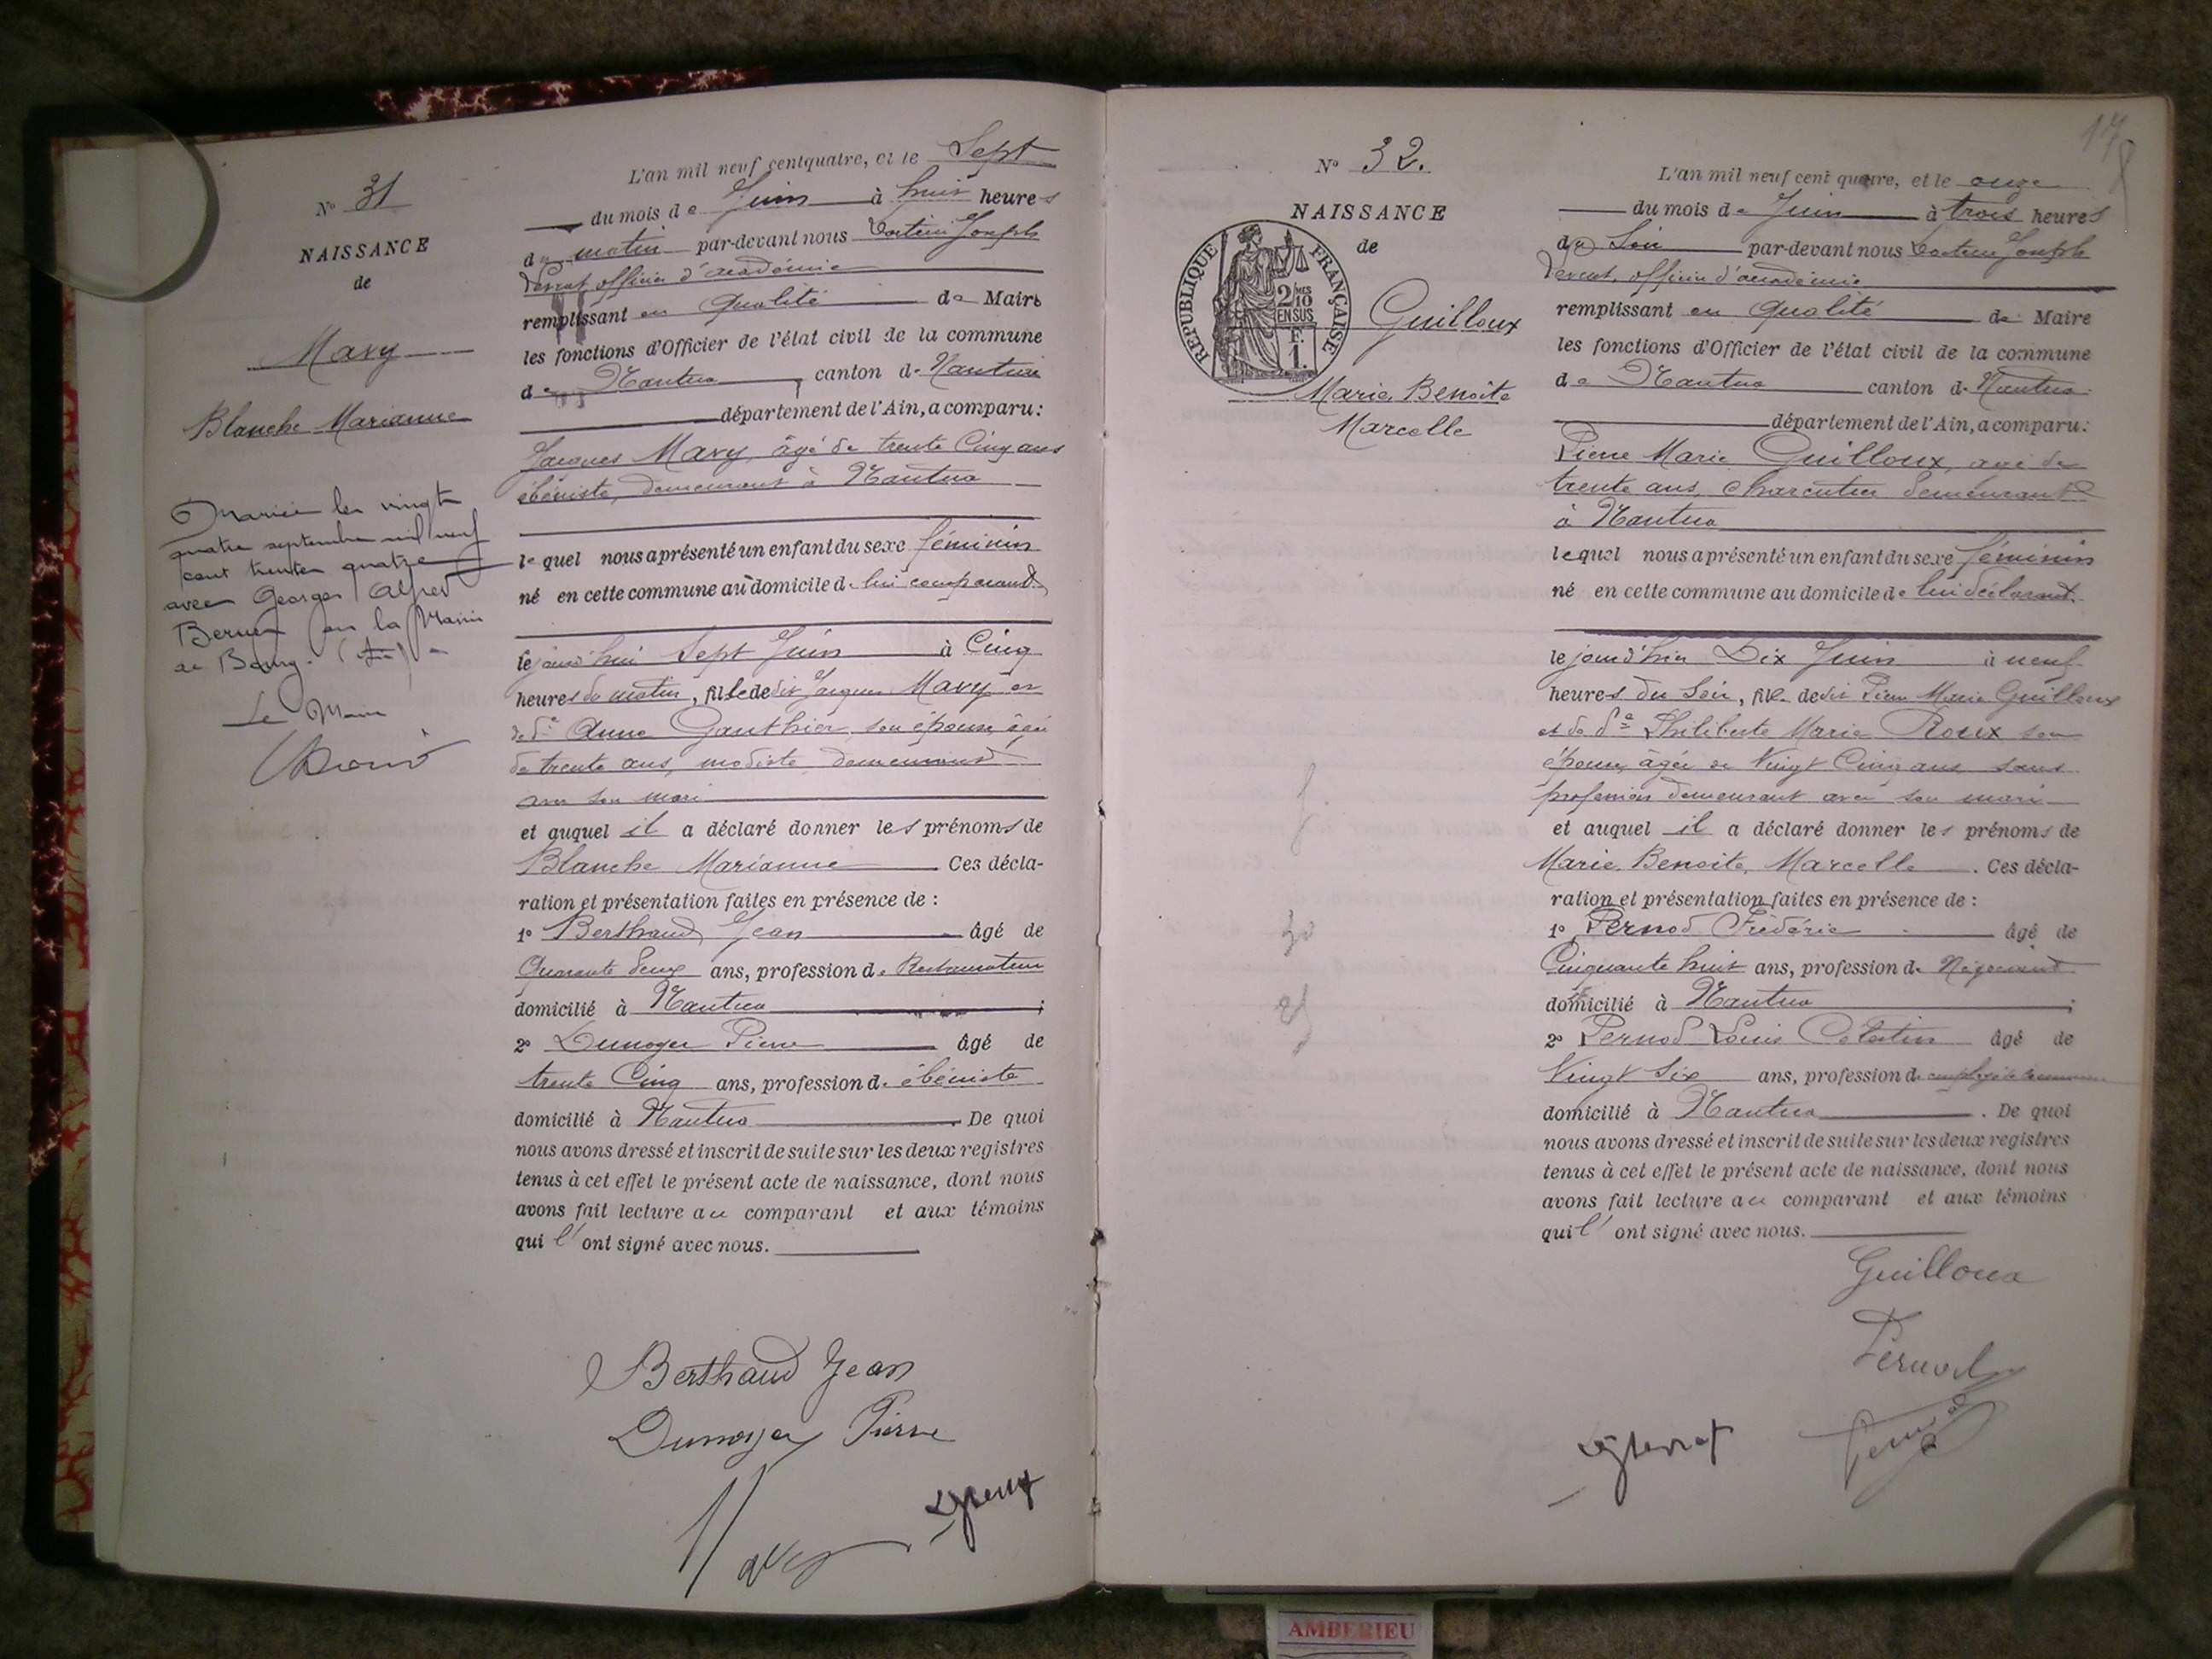 N° 31
NAISSANCE
de
Mary
Blanche Marianne
Mariée le vingt
quatre septembre mil neuf
cent trente quatre
avec Georges Alfred
en la Mairie
de Bourg. (Ain)
Le Maire
L'an mil neuf cent quatre, et le Sept
du mois de Juin à huit heures
du matin par-devant nous Joseph
officier d'académie
remplissant en qualité de Maire
les fonctions d'Officier de l'état civil de la commune
de Nantua, canton de Nantua
département de l'Ain, a comparu:
Jacques Mary, âgé de trente Cinq ans
ébéniste, demeurant à Nantua
lequel nous a présenté un enfant du sexe féminin
né en cette commune au domicile de lui comparant,
le jourd'hui Sept Juin à Cinq
heures du matin, fille de dit Jacques Mary et
de de Anne Gauthier, son épouse, âgée
de trente ans, modiste demeurant
avec son mari
et auquel il a déclaré donner les prénoms de
Blanche Marianne Ces décla-
ration et présentation faites en présence de :
1° Berthaud Jean âgé de
Quarante deux ans, profession de Restaurateur
domicilié à Nantua ;
2° Dumoyer Pierre âgé de
trente Cinq ans, profession de ébéniste
domicilié à Nantua De quoi
nous avons dressé et inscrit de suite sur les deux registres
tenus à cet effet le présent acte de naissance, dont nous
avons fait lecture au comparant et aux témoins
qui l'ont signé avec nous.
Berthaud Jean
Dumoyer Pierre
Mary
17
N° 32.
NAISSANCE
de
REPUBLIQUE FRANÇAISE
2 MES
10
EN SUS
F.
1.
Guilloux
Marie, Benoîte
Marcelle
L'an mil neuf cent quatre, et le onze
du mois de Juin à trois heures
du Soir par-devant nous Joseph
officier d'académie
remplissant en qualité de Maire
les fonctions d'Officier de l'état civil de la commune
de Nantua canton de Nantua
département de l'Ain, a comparu:
Pierre Marie Guilloux, âgé de
trente ans, charcutier demeurant
à Nantua
lequel nous a présenté un enfant du sexe féminin
né en cette commune au domicile de lui déclarant.
le jourd'hier Dix Juin à neuf
heures du Soir, fille de dit Pierre Marie Guilloux
et de de Philiberte Marie Roux son
épouse, âgée de Vingt Cinq ans sans
profession demeurant avec son mari
et auquel il a déclaré donner les prénoms de
Marie, Benoîte, Marcelle. Ces décla-
ration et présentation faites en présence de :
1° Pernod Frédéric âgé de
Cinquante huit ans, profession de Négociant
domicilié à Nantua ;
2° Pernod Louis Célestin âgé de
Vingt Six ans, profession de employé de commerce
domicilié à Nantua. De quoi
nous avons dressé et inscrit de suite sur les deux registres
tenus à cet effet le présent acte de naissance, dont nous
avons fait lecture au comparant et aux témoins
qui l'ont signé avec nous.
Guilloux
Pernod
Pernod
AMBERIEU